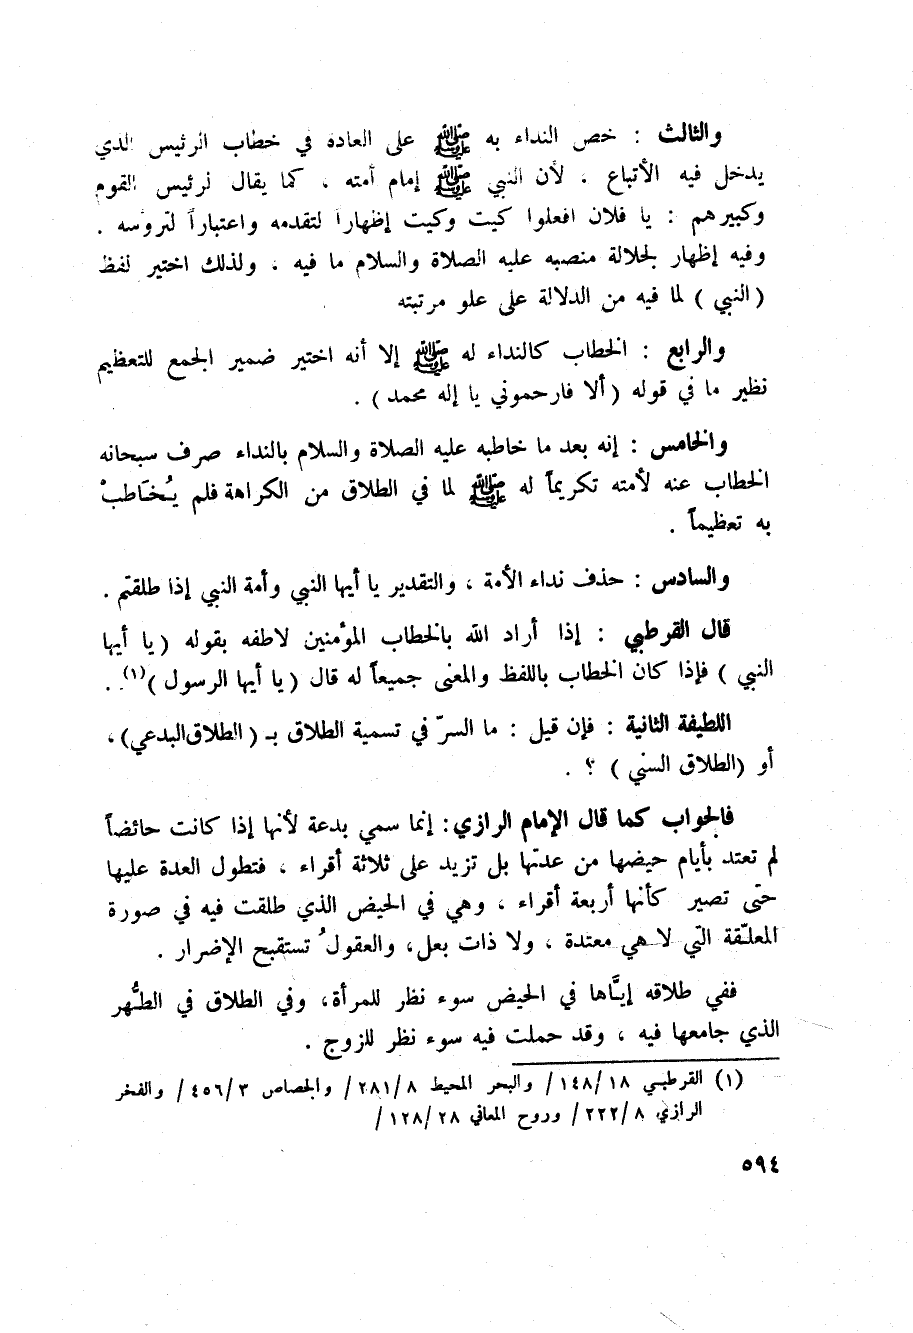 والثالث : خص النداء به ﷺ على العادة في خطاب الرئيس الذي
يدخل فيه الأتباع . لأن النبي ﷺ إمام أمته ، كما يقال لرئيس القوم
وكبيرهم : يا فلان افعلوا كيت وكيت إظهاراً لتقدمه واعتباراً لترؤسه .
وفيه إظهار لجلالة منصبه عليه الصلاة والسلام ما فيه ، ولذلك اختير لفظ
( النبي ) لما فيه من الدلالة على علو مرتبته
والرابع : الخطاب كالنداء له ﷺ إلا أنه اختير ضمير الجمع للتعظيم
نظير ما في قوله ( ألا فارحموني يا إله محمد ) .
والخامس : إنه بعد ما خاطبه عليه الصلاة والسلام بالنداء صرف سبحانه
الخطاب عنه لأمته تكريماً له ﷺ لما في الطلاق من الكراهة فلم يُخَاطبْ
به تعظيماً .
والسادس : حذف نداء الأمة ، والتقدير يا أيها النبي وأمة النبي إذا طلقتم .
قال القرطبي : إذا أراد الله بالخطاب المؤمنين لاطفه بقوله ( يا أيها
النبي ) فإذا كان الخطاب باللفظ والمعنى جميعاً له قال ( يا أيها الرسول )(١) .
اللطيفة الثانية : فإن قيل : ما السرّ في تسمية الطلاق بـ ( الطلاق البدعي ) ،
أو ( الطلاق السني ) ؟ .
فالجواب كما قال الإمام الرازي : إنما سمي بدعة لأنها إذا كانت حائضاً
لم تعتد بأيام حيضها من عدتها بل تزيد على ثلاثة أقراء ، فتطول العدة عليها
حتى تصير كأنها أربعة أقراء ، وهي في الحيض الذي طلقت فيه في صورة
المعلّقة التي لا هي معتدة ، ولا ذات بعل ، والعقولُ تستقبح الإضرار .
ففي طلاقه إيَّاها في الحيض سوء نظر للمرأة ، وفي الطلاق في الطُّهر
الذي جامعها فيه ، وقد حملت فيه سوء نظر للزوج .
(١) القرطبي ١٤٨/١٨/ والبحر المحيط ٢٨١/٨/ والجصاص ٤٥٦/٣/ والفخر
الرازي ٢٢٢/٨/ وروح المعاني ١٢٨/٢٨/
٥٩٤